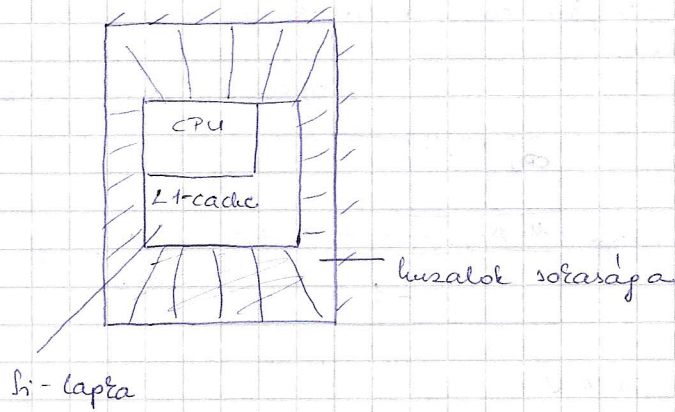 CPU
L1-cache
huzalok sokasága
Si-lapka